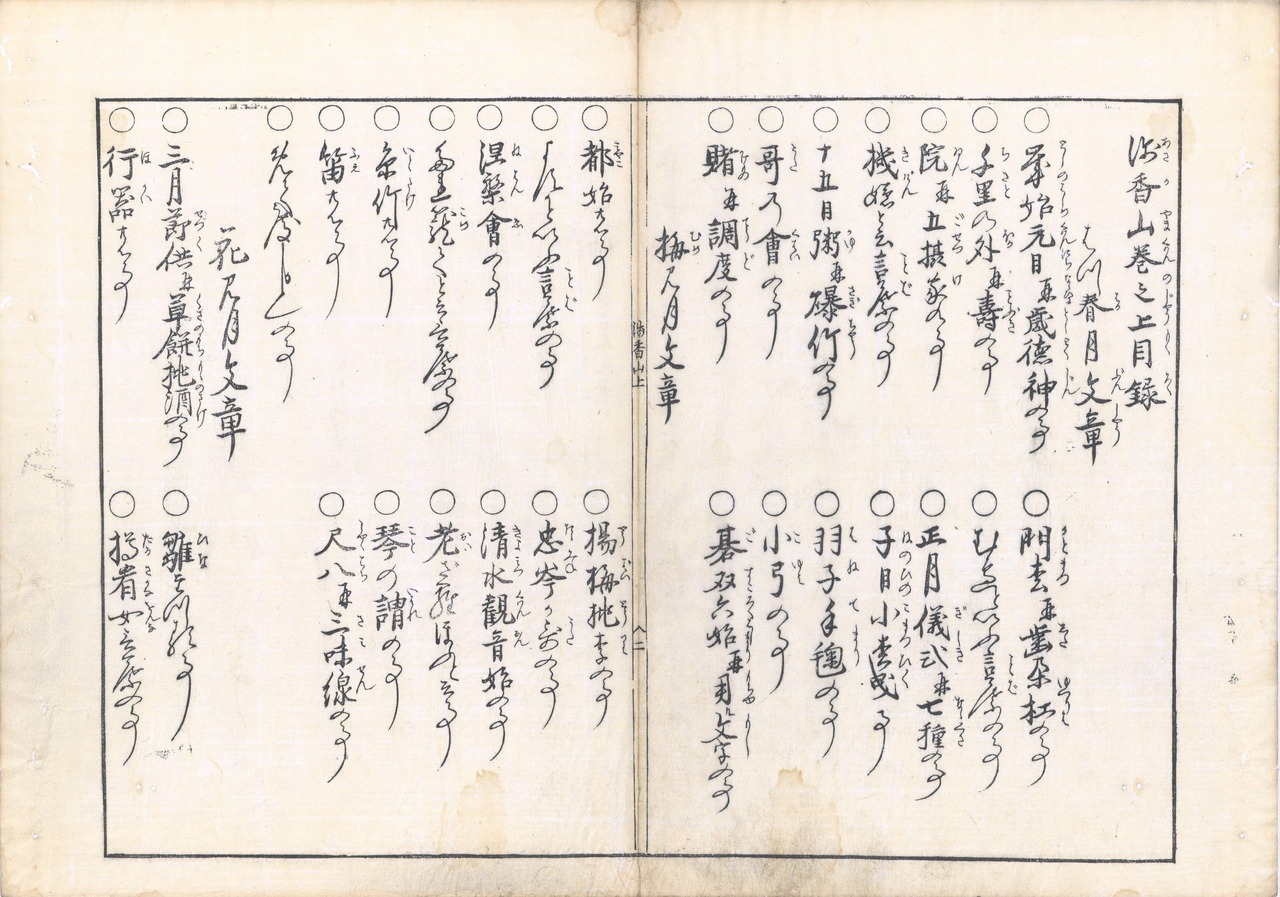 浅香山巻之上目録
初春月文章
○年始元日并歳徳神の事
○門松并歯朶杠の事
○千里の外并壽の事
○むといふ言葉の事
○院并五摂家の事
○正月儀式并七種の事
○機嫌と云言葉の事
○子日小松曳事
○十五日粥并爆竹の事
○羽子手鞠の事
○哥の會の事
○小弓の事
○賭并調度の事
○碁双六始并用る文字の事
梅見月文章
浅香山上
二
○都始る事
○楊梅桃李の事
○といふ言葉の事
○忠岑が哥の事
○涅槃會の事
○清水観音始の事
○籠くと云言葉の事
○老
○糸竹始る事
○琴の謂の事
○笛始る事
○尺八并三味線の事
○の事
花見月文章
○三月節供并草餅桃酒の事
○雛まつりの事
○行器始る事
○樽肴